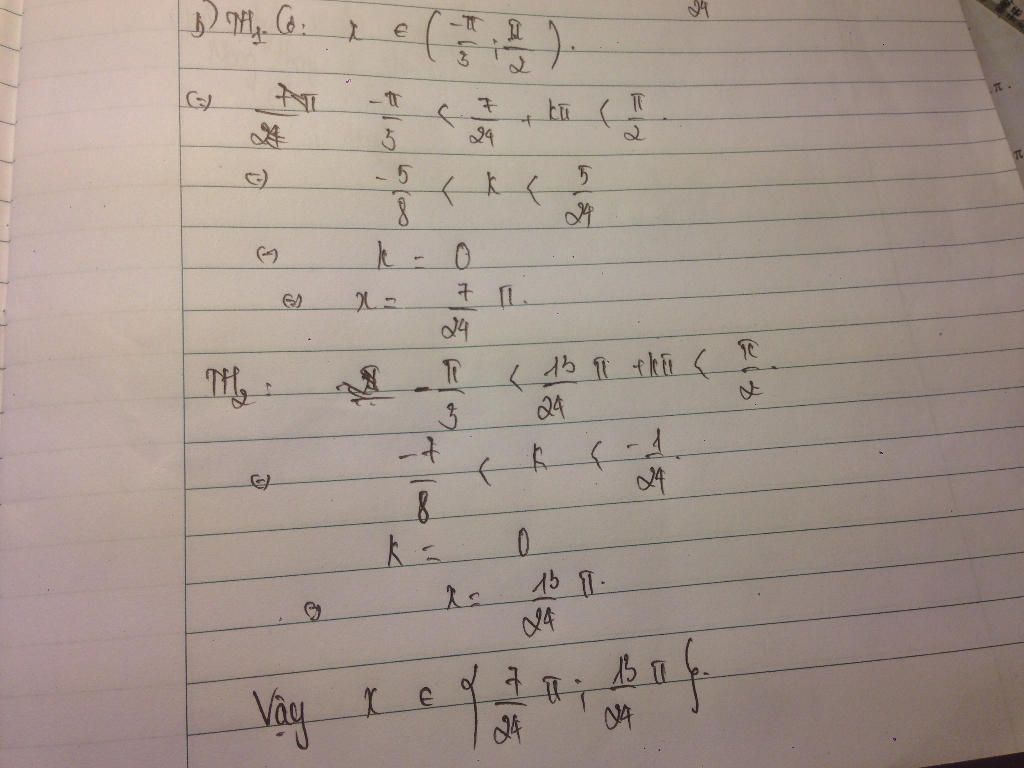 24
b) TH1. Có: x ∈ (-π/3 ; π/2).
(=) -π/3 < 7/24 + kπ < π/2.
(=) -5/8 < k < 5/24
(=) k = 0
(=) x = 7/24 π.
TH2: -π/3 < 13/24 π + kπ < π/2.
(=) -7/8 < k < -1/24.
k = 0
(=) x = 13/24 π.
Vậy x ∈ {7/24 π ; 13/24 π}.